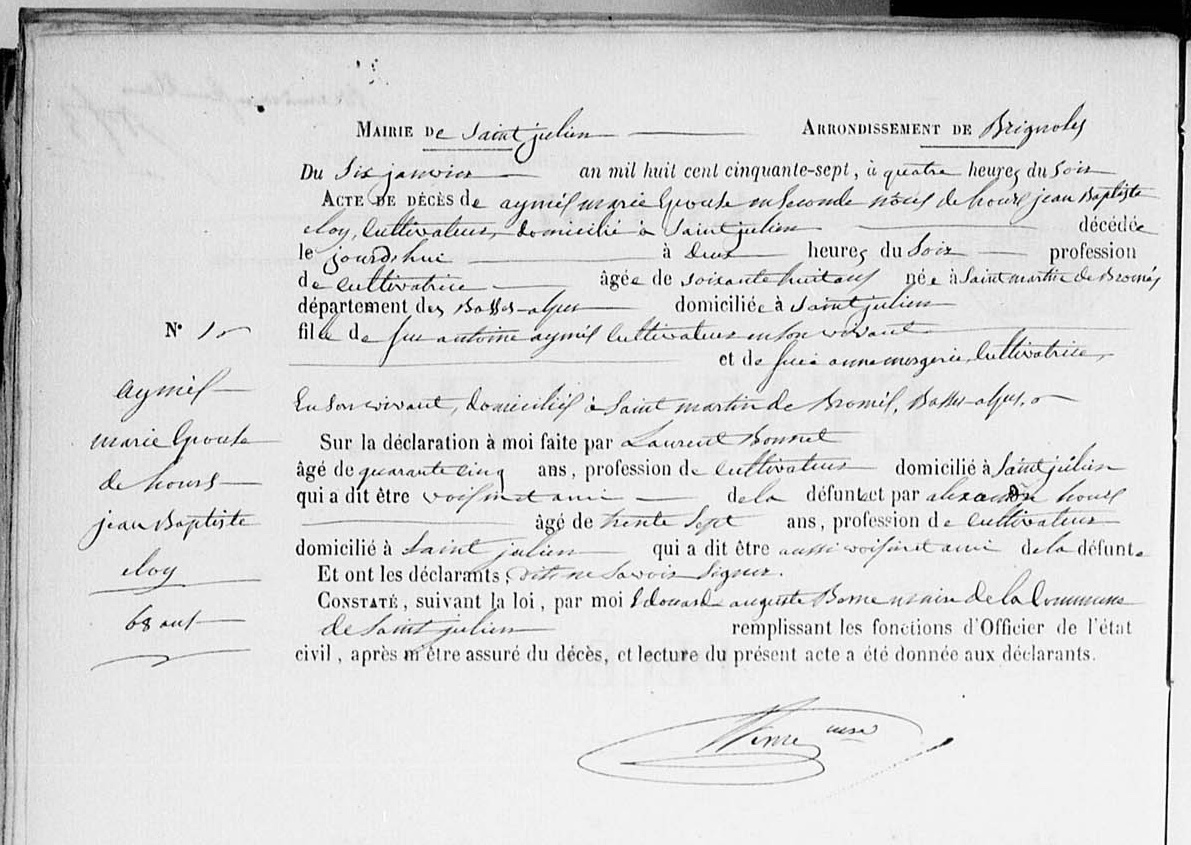 Mairie de Saint julien Arrondissement de Brignoles
Du Six janvier an mil huit cent cinquante-sept, à quatre heures du Soir
Acte de décès de aymés marie Epouse en Seconde noces de hours jean Baptiste
eloy, Cultivateur, domicilié à Saint julien décédée
le jourd'hui à deux heures du Soir profession
de Cultivatrice âgée de soixante huit ans née à Saint martin de Bromés
département des Basses-alpes domiciliée à Saint julien
N° 1er fille de feu antoine aymés Cultivateur en Son vivant
et de feue anne Cultivatrice,
aymés
En Son vivant, domiciliés à Saint martin de Bromés, Basses-alpes.
Sur la déclaration à moi faite par Laurent Bonnet
marie Epouse
âgé de quarante cinq ans, profession de Cultivateur domicilié à Saint julien
de hours
qui a dit être voisin et ami de la défunte et par alexandre hours
jean Baptiste
âgé de trente Sept ans, profession de Cultivateur
domicilié à Saint julien qui a dit être aussi voisin et ami de la défunte
eloy
Et ont les déclarants, dit ne Savoir Signer.
Constaté, suivant la loi, par moi Edouard auguste Berne maire de la Commune
68 ans
de Saint julien remplissant les fonctions d'Officier de l'état
civil, après m'être assuré du décès, et lecture du présent acte a été donnée aux déclarants.
Berne